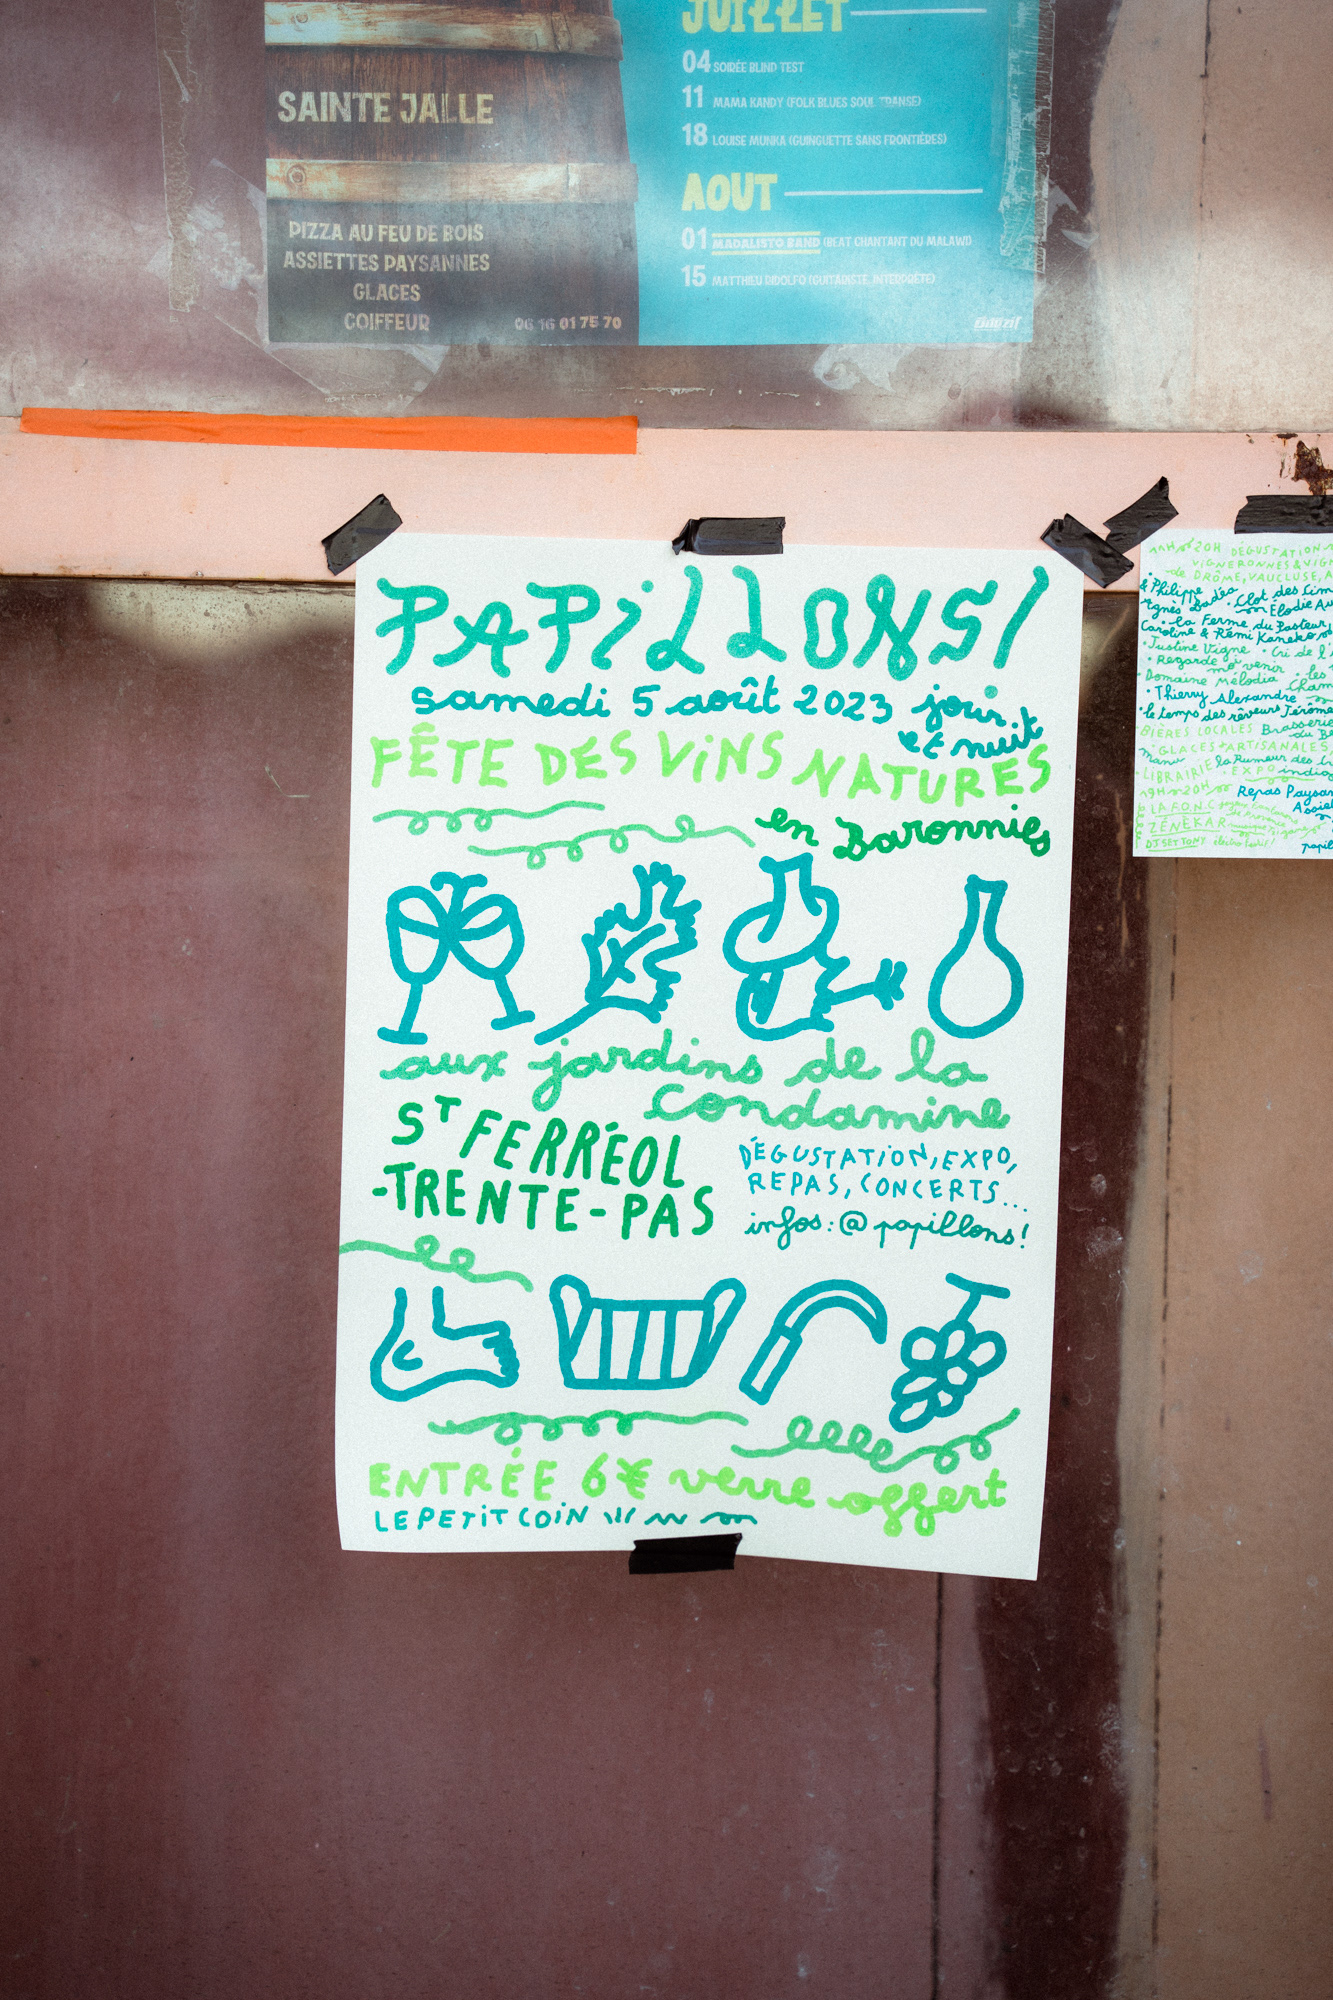 SAINTE JALLE
PIZZA AU FEU DE BOIS
ASSIETTES PAYSANNES
GLACES
COIFFEUR
06 16 01 75 70
JUILLET
04 SOIRÉE BLIND TEST
11 MAMA KANDY (FOLK BLUES SOUL TRANSE)
18 LOUISE MUNKA (GUINGUETTE SANS FRONTIÈRES)
AOUT
01 MADALISTO BAND (BEAT CHANTANT DU MALAWI)
15 MATTHIEU RIDOLFO (GUITARISTE, INTERPRÈTE)
PAPiLLONS!
samedi 5 août 2023 jour
et nuit
FÊTE DES ViNS NATURES
en Baronnies
aux jardins de la
Condamine
ST FERRÉOL
-TRENTE-PAS
DÉGUSTATiON, EXPO,
REPAS, CONCERTS...
infos: @papillons!
ENTRÉE 6€ verre offert
LE PETiT COiN
11H 20H DÉGUSTATION
VIGNERONNES & VIG
de DRÔME, VAUCLUSE, A
& Philippe Clot des Cim
Agnès Badéa Elodie Au
la Ferme du Pasteur,
Caroline & Rémi Kaneko
Justine Vigne Cri de l'
Regarde moi venir les
Domaine Mélodia Cham
Thierry Alexandre
le temps des rêveurs Jérôme
BIÈRES LOCALES Brasserie
du B
GLACES ARTISANALES
la Rumeur des
LIBRAIRIE EXPO indigo
19H 20H Repas Paysan
Assie
LA F.O.N.C
ZÉNEKAR
DJ SET TONY
papil